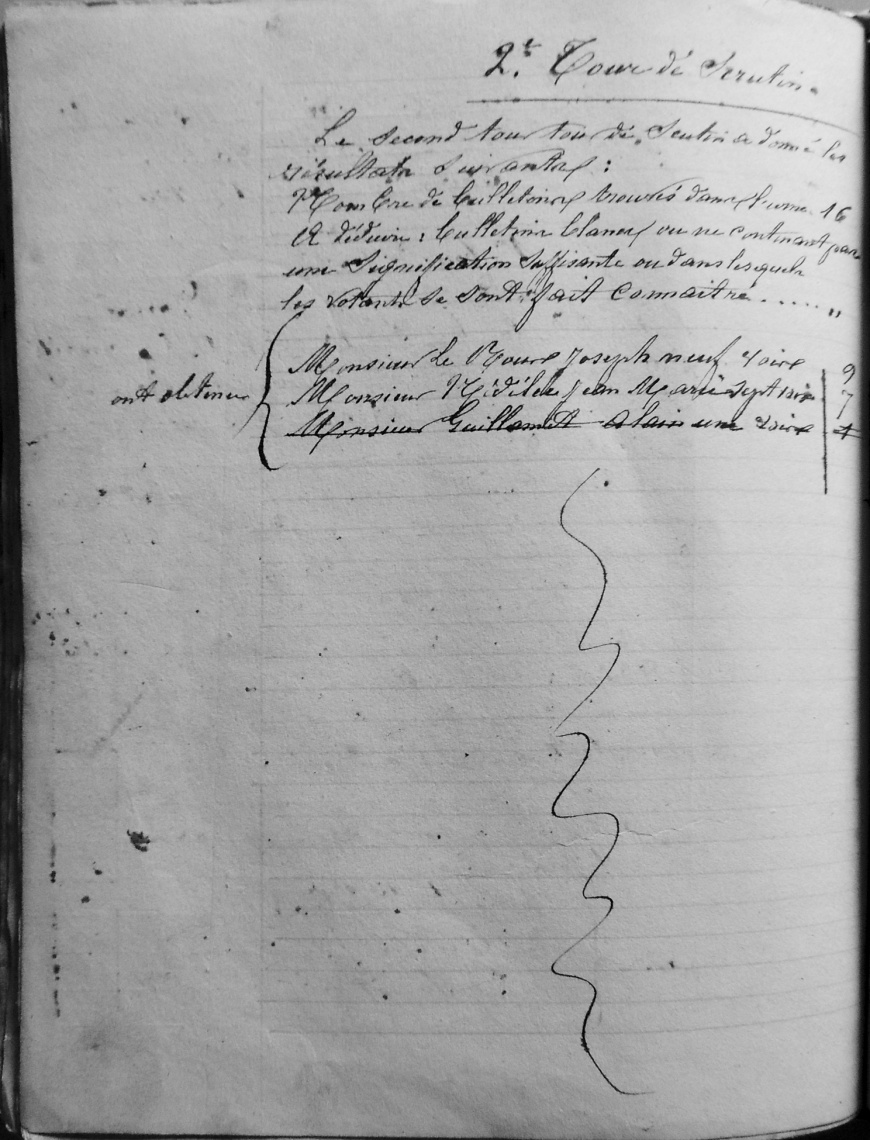 2e Tour de Scrutin.
Le second tour tour de Scutin a donné les
résultats suivantes :
Nombre de bulletins trouvés dans l'urne 16
A déduire : bulletins blancs ou ne contenant pas
une signification suffisante ou dans lesquels
les votants se sont fait connaitre ..... "
ont obtenu
Monsieur Le Joseph neuf voix 9
Monsieur Jean Marie sept voix 7
Monsieur Guillamet Alain une voix 1